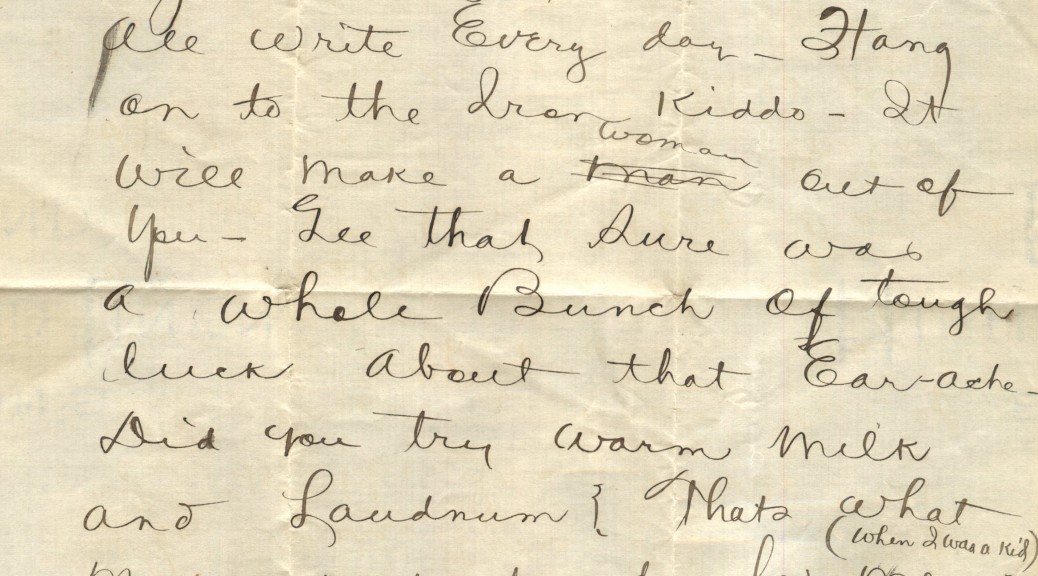 write Every day - Hang
on to the Iron Kiddo - It
woman
will make a man out of
you - Gee that sure was
a whole Bunch of tough
luck about that Ear-ache -
Did you try warm Milk
and Laudnum { Thats what
(when I was a kid)